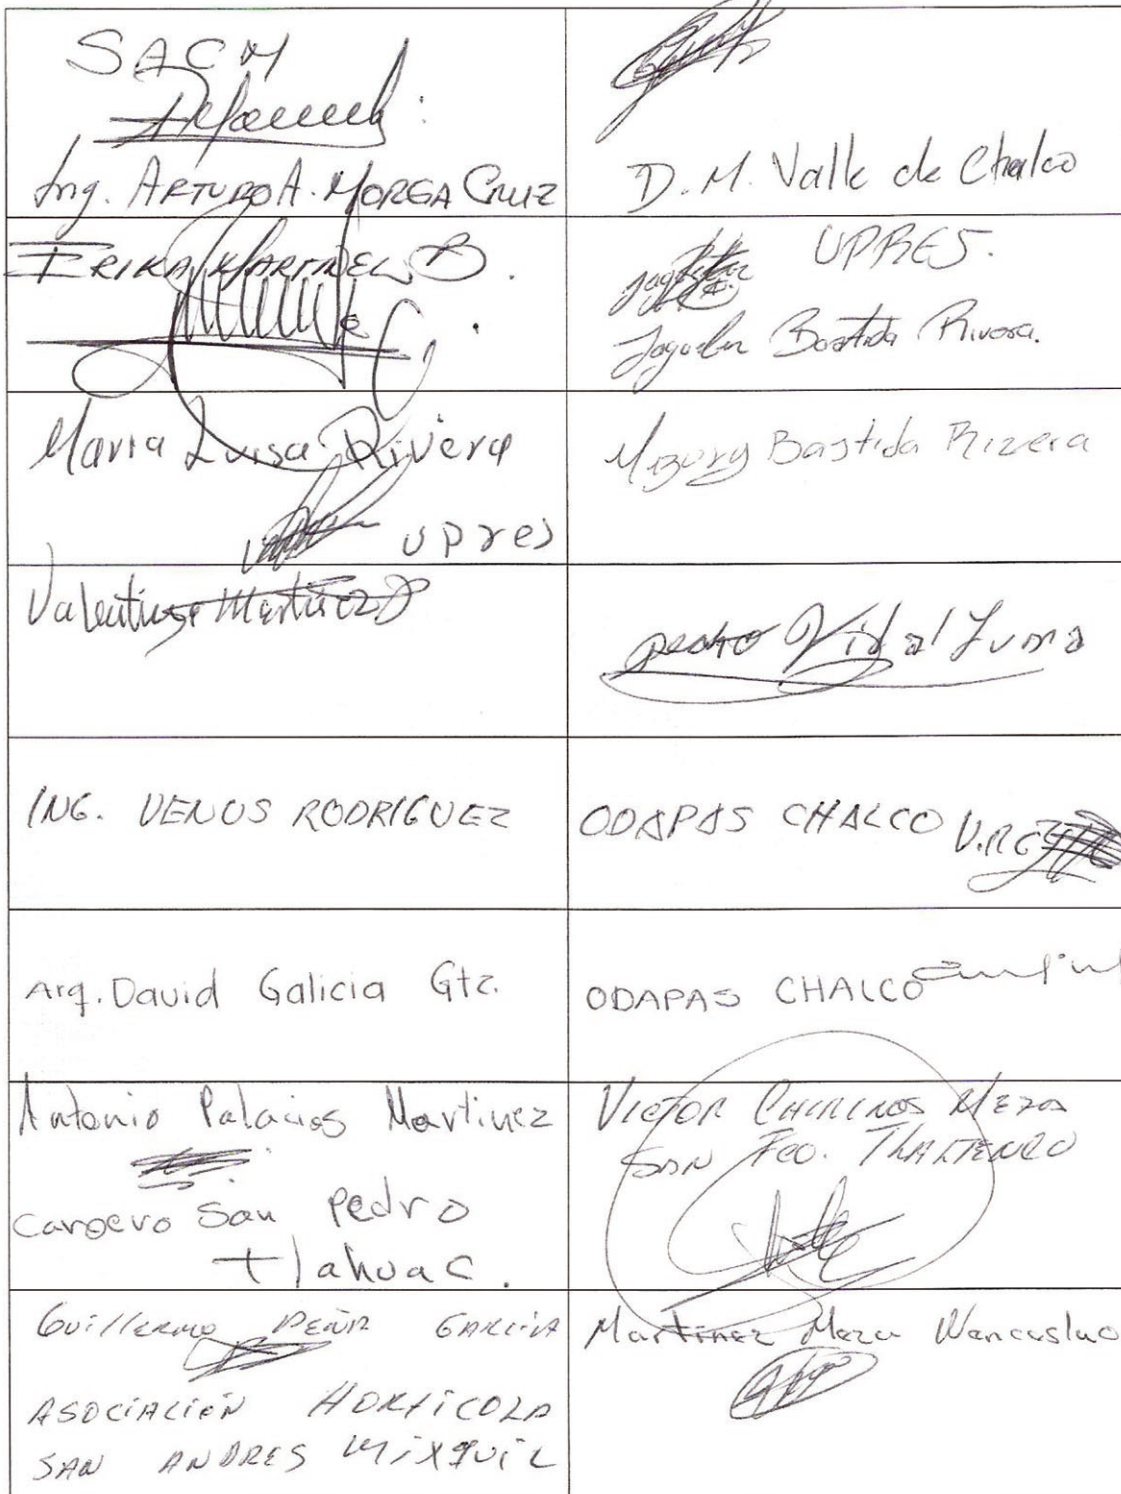 SACM
Ing. ARTURO A. MORGA CRUZ
D.M. Valle de Chalco
ERIKA MARTINEZ B.
UPRES.
Jaquelin Bastida Rivera.
Maria Luisa Rivera
upres
Bastida Rivera
Valentina Martinez
pedro Vidal Luna
ING. VENUS RODRIGUEZ
ODAPAS CHALCO
Arq. David Galicia Gtz.
ODAPAS CHALCO
Antonio Palacios Martinez
San Pedro
tlahuac.
VICTOR CHIRINOS MEZA
SAN FCO. TLALTENCO
Guillermo PEÑA GARCÍA
ASOCIACIÓN HORTÍCOLA
SAN ANDRES MIXQUIC
Martinez Meza Wenceslao